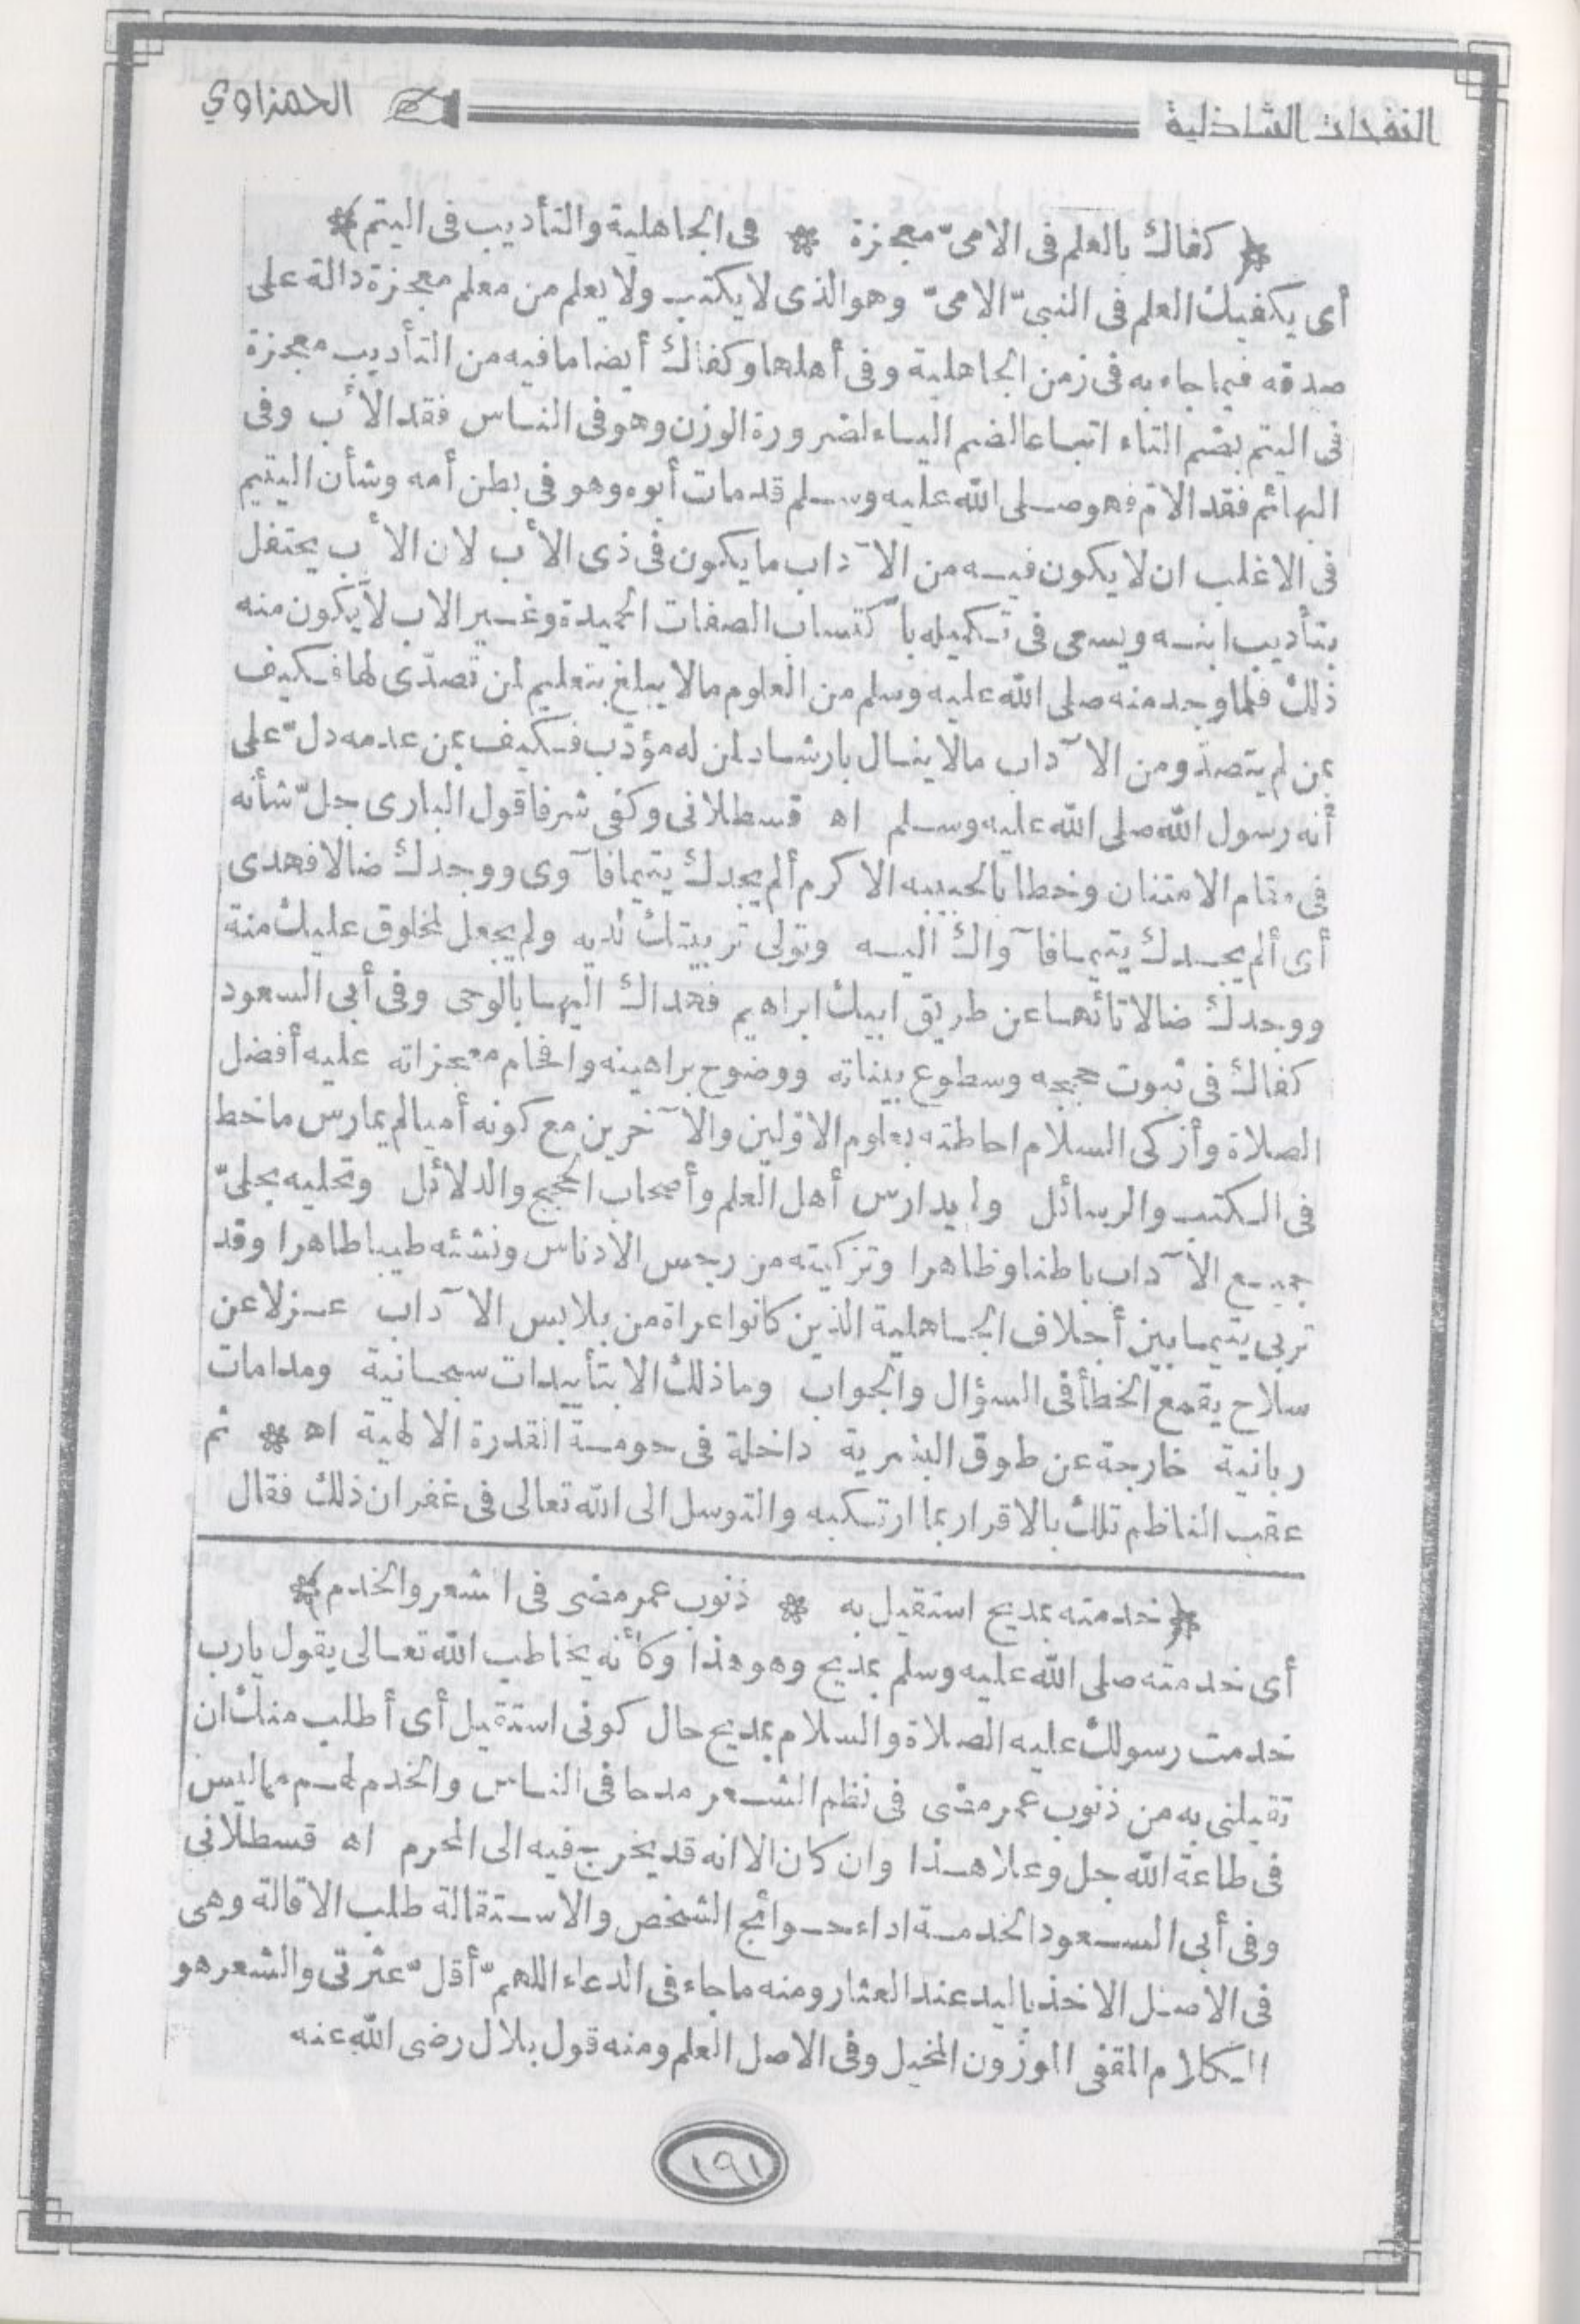 النفحات الشاذلية
الحمزاوي
﴿ كفاك بالعلم فى الامىّ معجزة * فى الجاهلية والتأديب فى اليتم ﴾
أى يكفيك العلم فى النبىّ الامىّ وهو الذى لا يكتب ولا يعلم من معلم معجزة دالة على
صدقه فيما جاء به فى زمن الجاهلية وفى أهلها وكفاك أيضا ما فيه من التأديب معجزة
فى اليتم بضم التاء اتباعا لضم الياء لضرورة الوزن وهو فى الناس فقد الأب وفى
البهائم فقد الامّ فهو صلى الله عليه وسلم قد مات أبوه وهو فى بطن أمه وشأن اليتيم
فى الاغلب ان لا يكون فيه من الآداب ما يكون فى ذى الأب لان الأب يحتفل
بتأديب ابنه ويسعى فى تكميله باكتساب الصفات الحميدة وغير الاب لا يكون منه
ذلك فلما وجد منه صلى الله عليه وسلم من العلوم ما لا يبلغ بتعليم لمن تصدّى لها فكيف
بمن لم يتصدّ ومن الآداب ما لا ينال بارشاد لمن له مؤدّب فكيف بمن عدمه دلّ على
أنه رسول الله صلى الله عليه وسلم اه قسطلانى وكفى شرفا قول البارى جلّ شأنه
فى مقام الامتنان وخطابا لحبيبه الاكرم ألم يجدك يتيما فآوى ووجدك ضالا فهدى
أى ألم يجدك يتيما فآواك اليه وتولى تربيتك لديه ولم يجعل لمخلوق عليك منة
ووجدك ضالا تائها عن طريق ابيك ابراهيم فهداك اليها بالوحى وفى أبى السعود
كفاك فى ثبوت حججه وسطوع بيناته ووضوح براهينه وافحام معجزاته عليه أفضل
الصلاة وأزكى السلام احاطته بعلوم الاوّلين والآخرين مع كونه أميا لم يمارس ما خط
فى الكتب والرسائل ولم يدارس أهل العلم وأصحاب الحجج والدلائل وتحليه بحلىّ
جميع الآداب باطنا وظاهرا وتزكيته من رجس الادناس ونشئه طيبا طاهرا وقد
تربى يتيما بين أجلاف الجاهلية الذين كانوا عراة من بلابس الآداب عزلا عن
سلاح يقمع الخطأ فى السؤال والجواب وما ذلك الا بتأييدات سبحانية ومدامات
ربانية خارجة عن طوق البشرية داخلة فى حومة القدرة الالهية اه * ثم
عقب الناظم تلك بالاقرار بما ارتكبه والتوسل الى الله تعالى فى غفران ذلك فقال
﴿ خدمته بمديح استقيل به * ذنوب عمر مضى فى الشعر والخدم ﴾
أى خدمته صلى الله عليه وسلم بمديح وهو هذا وكأنه يخاطب الله تعالى يقول يارب
خدمت رسولك عليه الصلاة والسلام بمديح حال كونى استقيل أى أطلب منك ان
تقيلنى به من ذنوب عمر مضى فى نظم الشعر مدحا فى الناس والخدم لهم مما ليس
فى طاعة الله جل وعلا هذا وان كان الا انه قد يخرج فيه الى المحرم اه قسطلانى
وفى أبى السعود الخدمة اداء حوائج الشخص والاستقالة طلب الاقالة وهى
فى الاصل الاخذ باليد عند العثار ومنه ما جاء فى الدعاء اللهمّ أقلّ عثرتى والشعر هو
الكلام المقفى الموزون المخيل وفى الاصل العلم ومنه قول بلال رضى الله عنه
١٩١